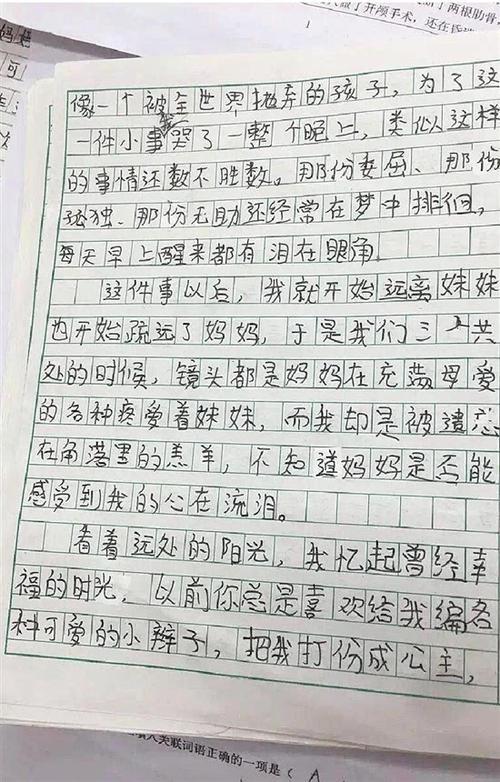 做了开颅手术，还在昏
两根肋骨，
1
妈妈
可
像一个被全世界抛弃的孩子，为了这
一件小事哭了一整个晚上，类似这样
的事情还数不胜数。那份委屈、那份
孤独、那份无助还经常在梦中排徊，
每天早上醒来都有泪在眼角。
这件事以后，我就开始远离妹妹
也开始疏远了妈妈，于是我们三人共
处的时候，镜头都是妈妈在充满母爱
的各种疼爱着妹妹，而我却是被遗忘
在角落里的羔羊，不知道妈妈是否能
感受到我的心在流泪。
看着远处的阳光，我忆起曾经幸
福的时光，以前你总是喜欢给我编各
种可爱的小辫子，把我打份成公主，
填入关联词语正确的一项是（ A